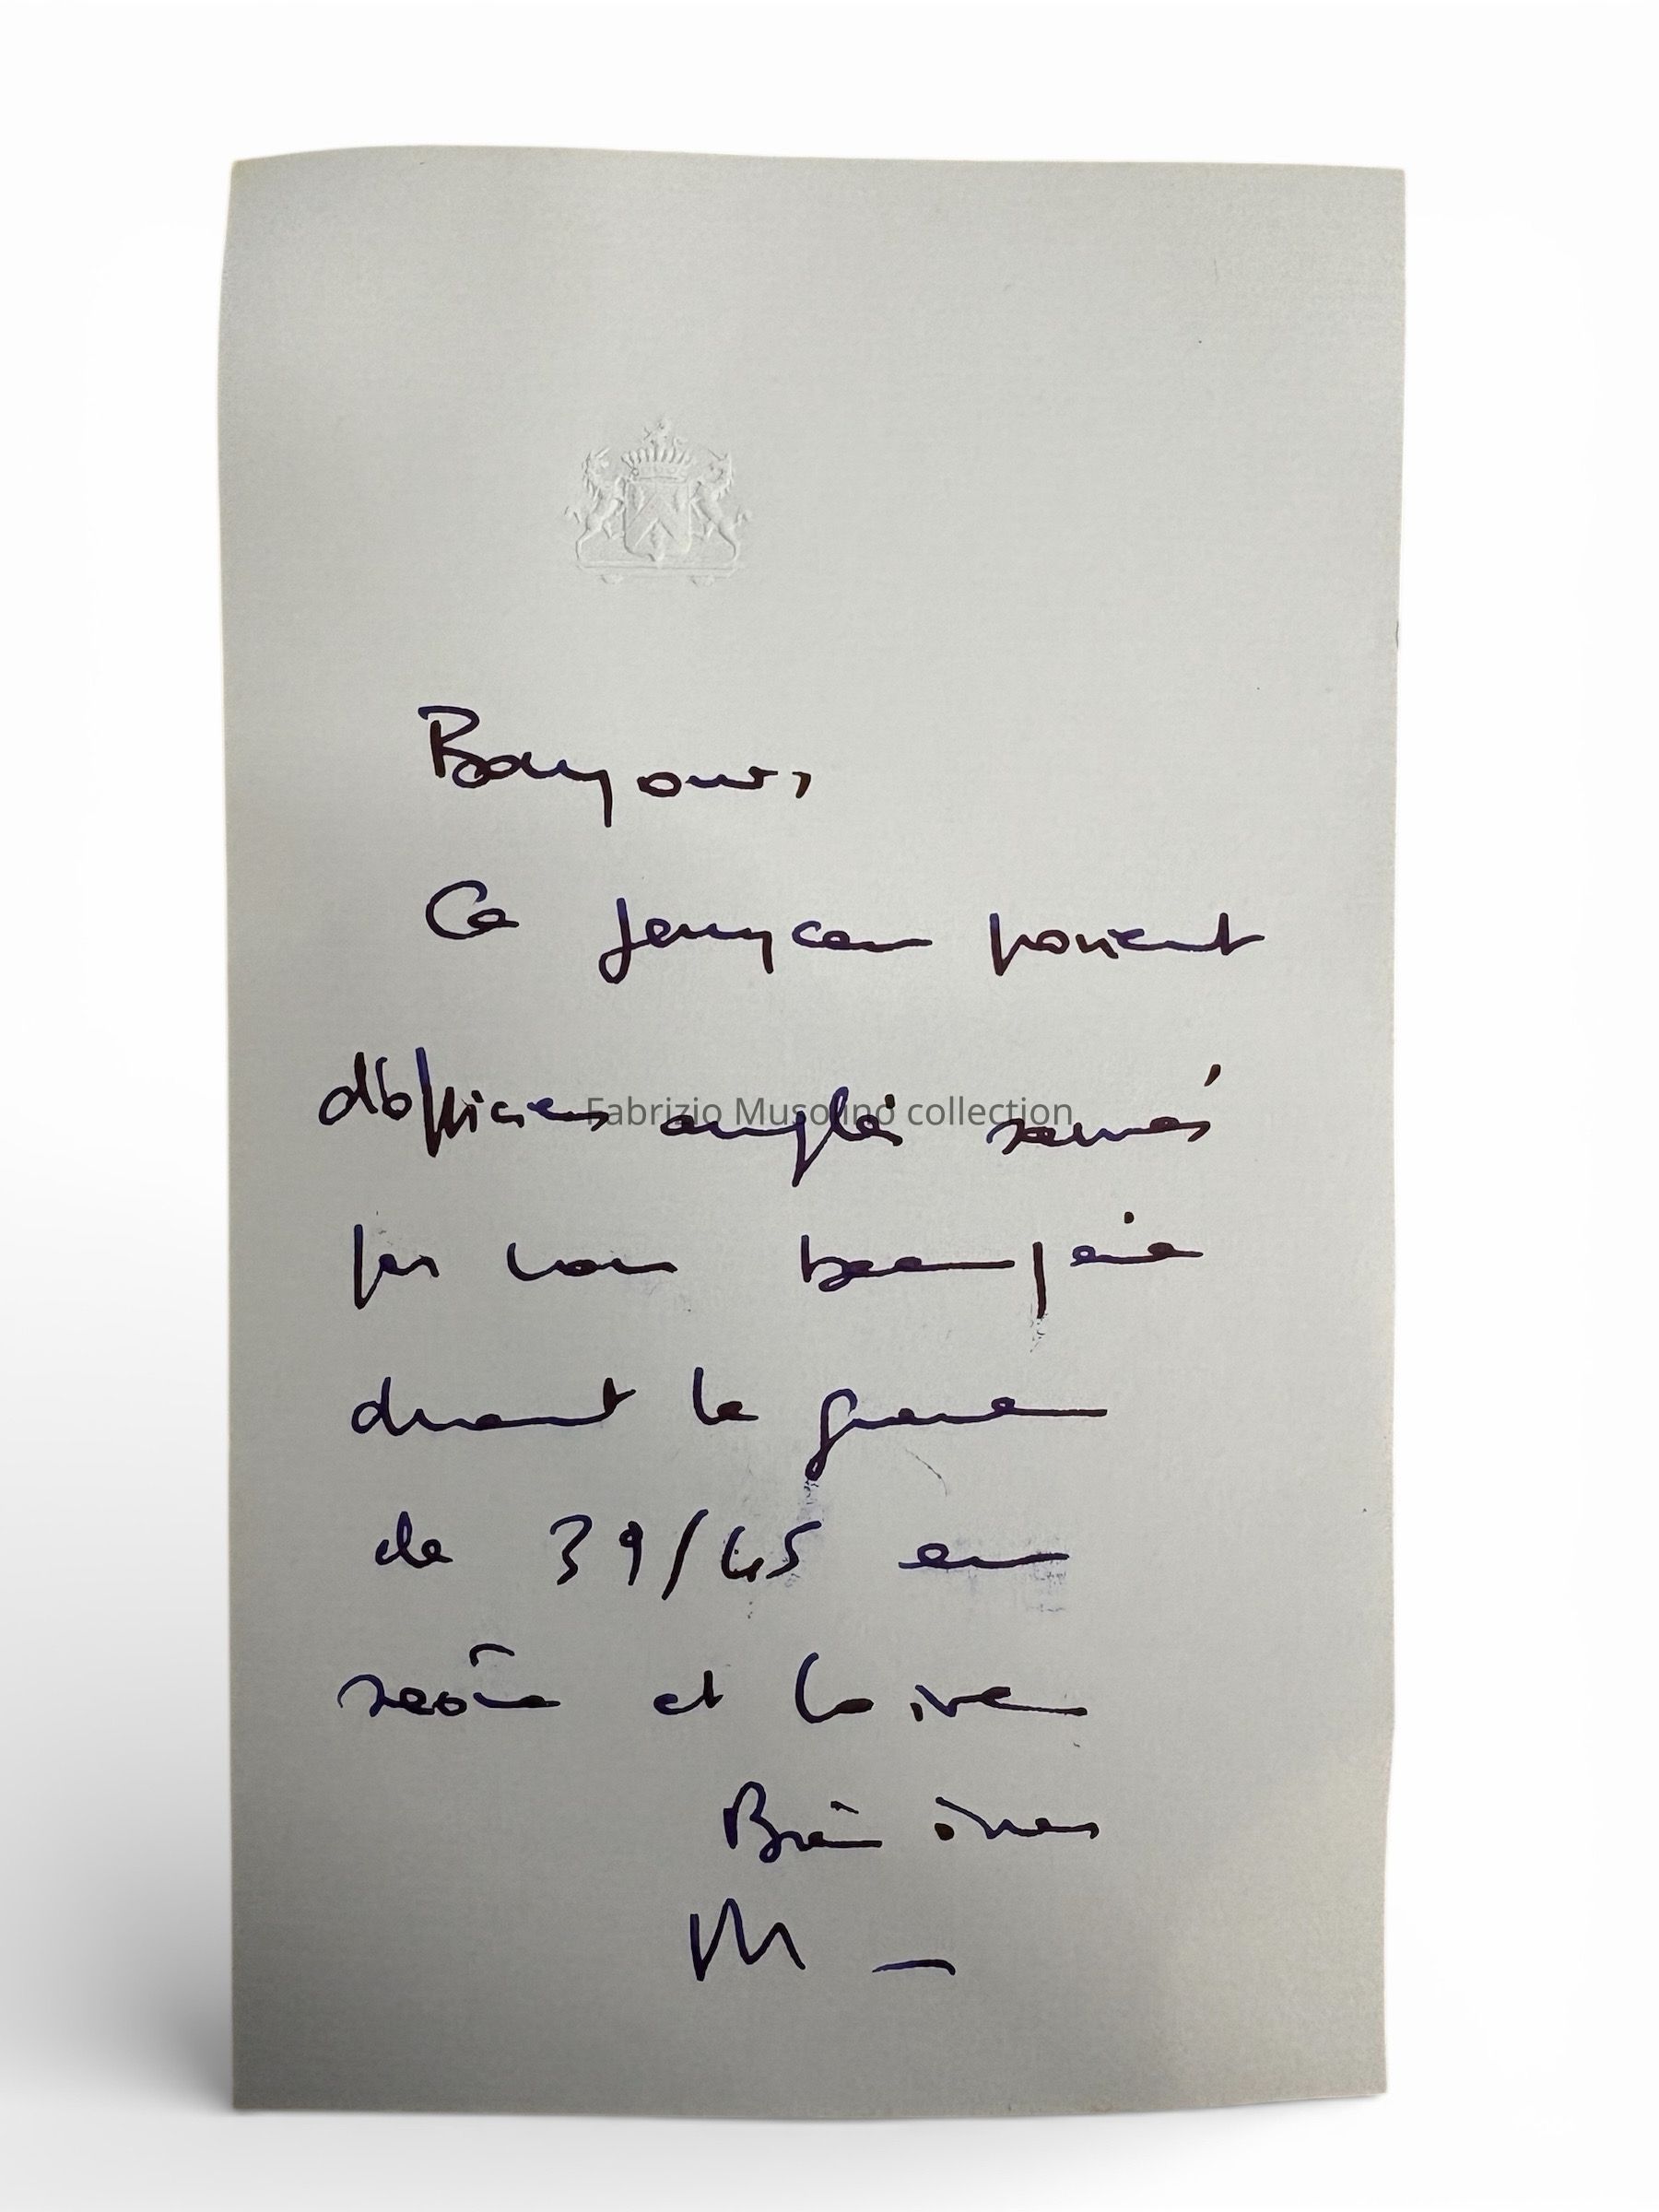 Bonjour,
Ce jerrycan vient
d'officiers anglais sauvés
Fabrizio Musolino collection
par mon beau père
durant la guerre
de 39/45 en
saône et Loire
Bien
M _